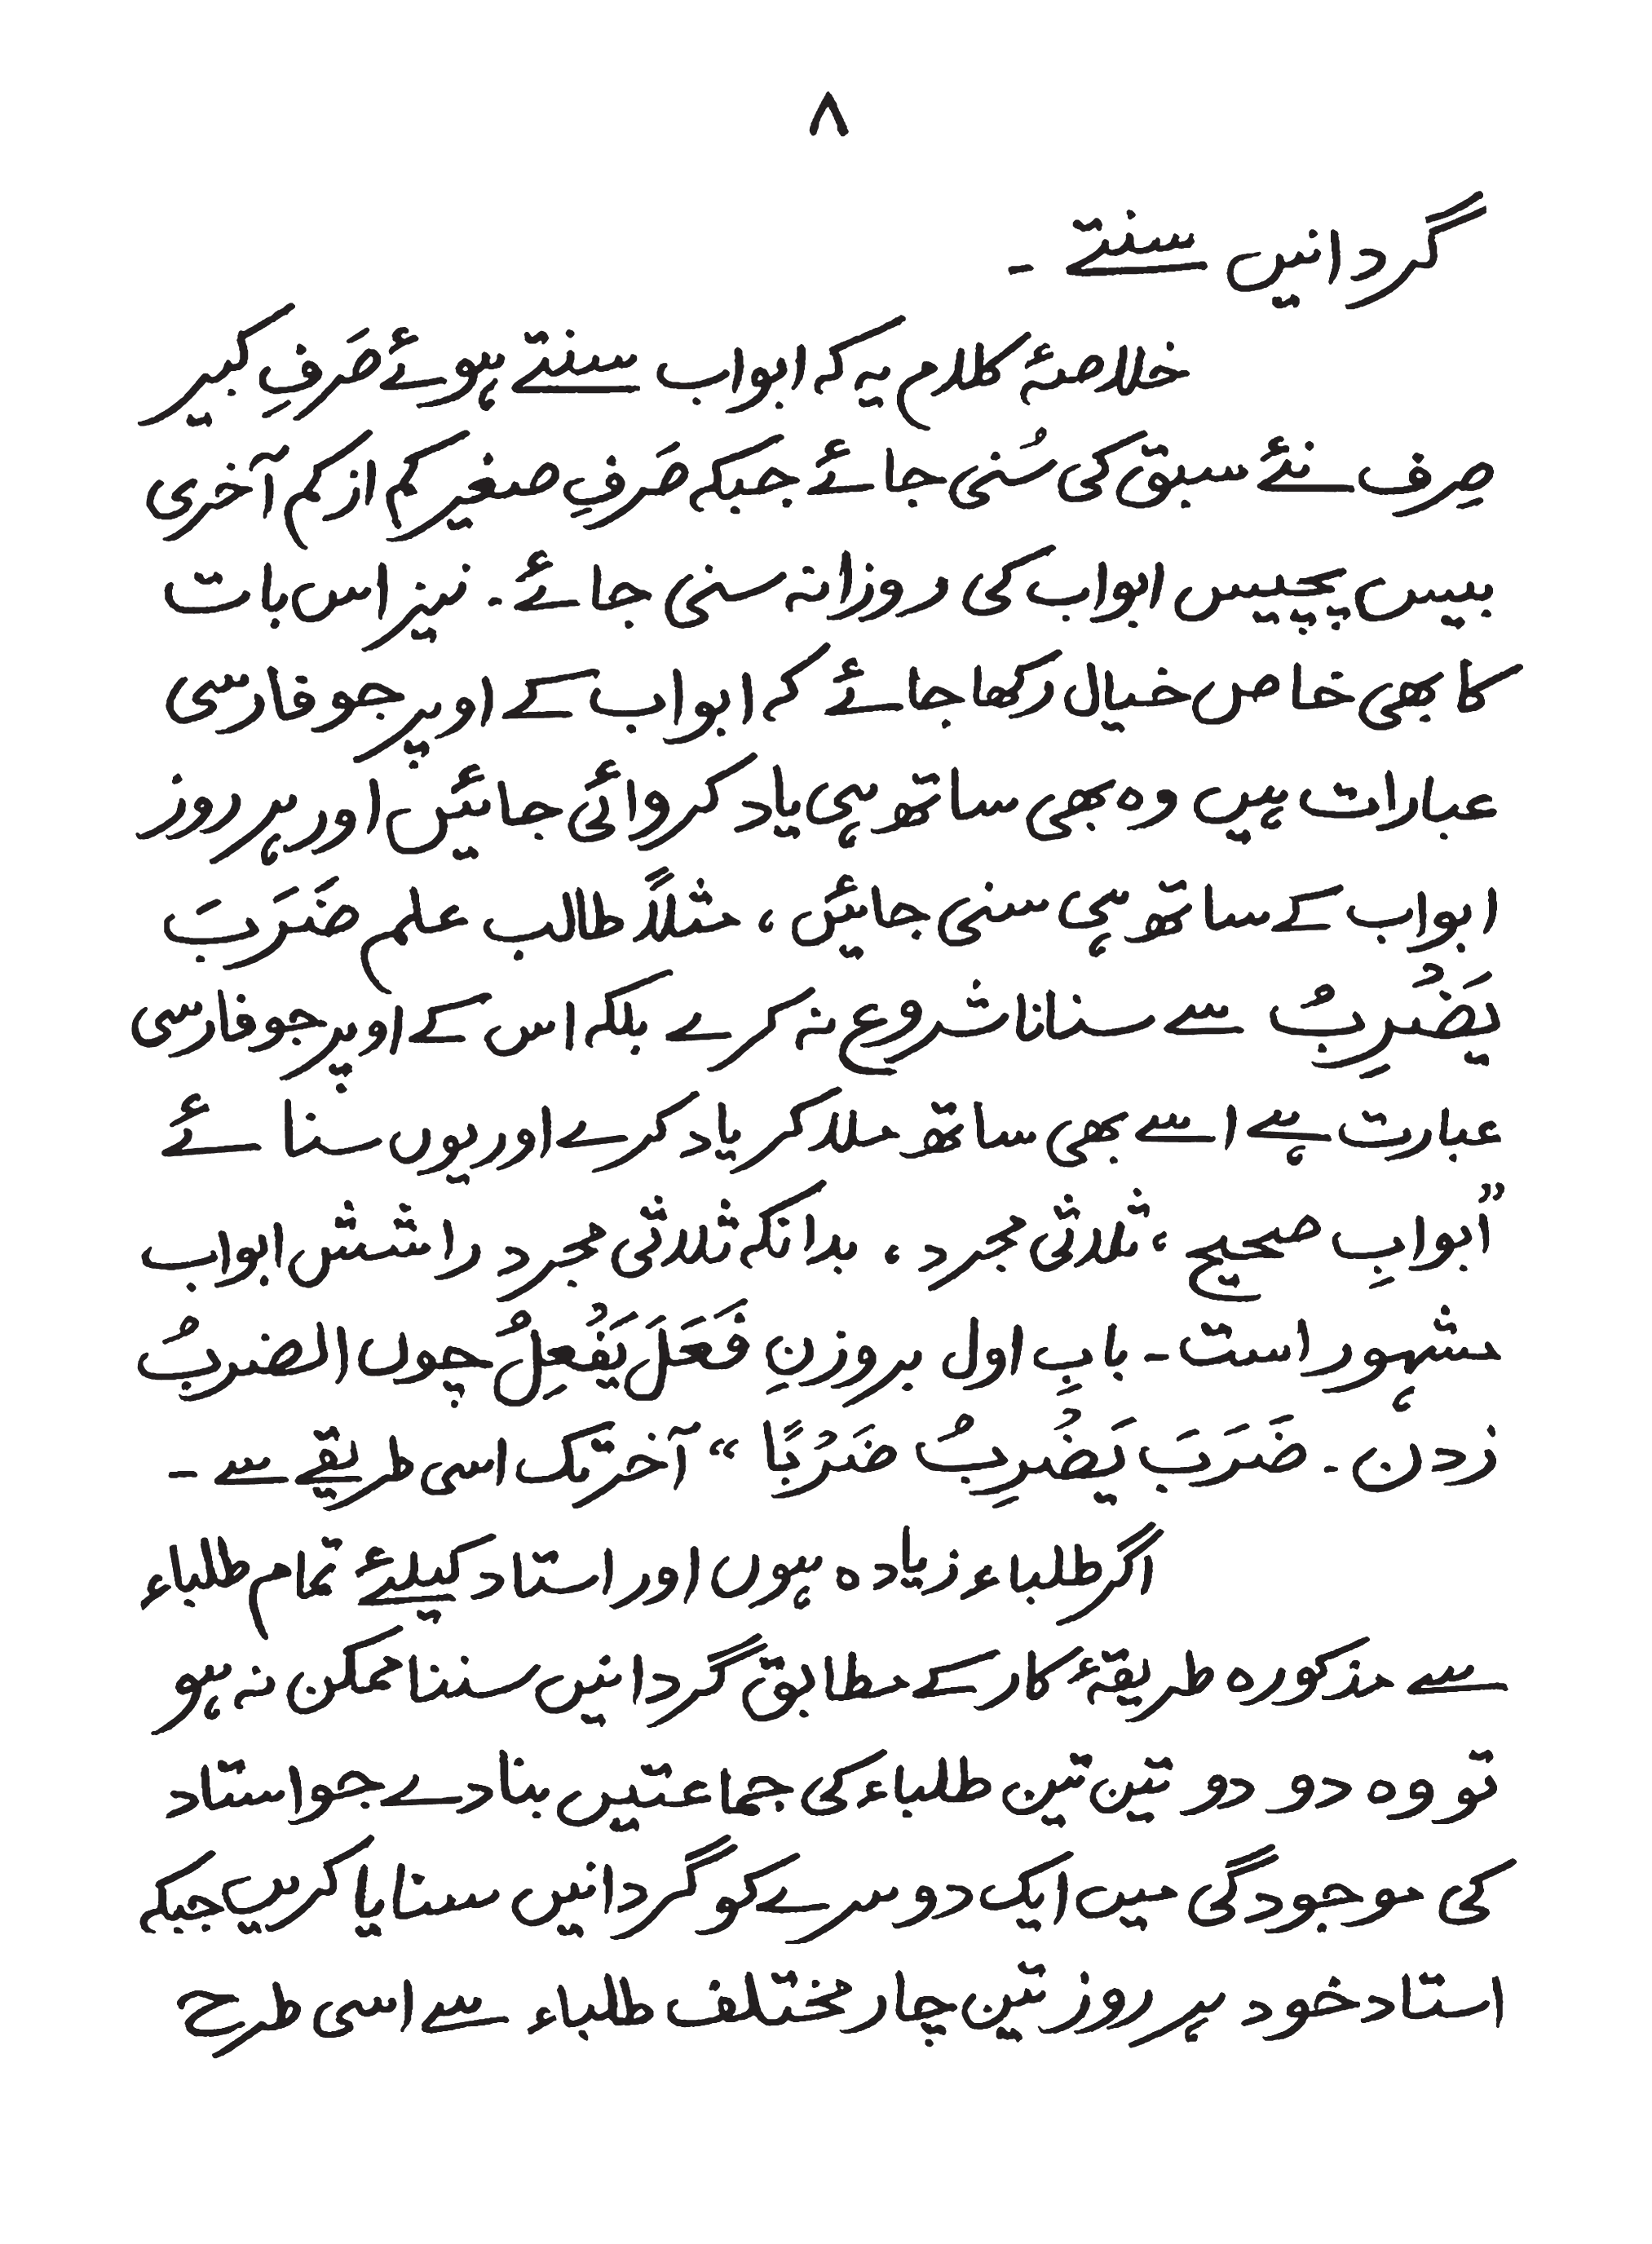 ۸
گردانیں سنتے ۔
خلاصۂ کلام یہ کہ ابواب سنتے ہوئے صَرفِ کبیر
صِرف نئے سبق کی سُنی جائے جبکہ صَرفِ صغیر کم از کم آخری
بیس پچیس ابواب کی روزانہ سنی جائے۔ نیز اس بات
کا بھی خاص خیال رکھا جائے کہ ابواب کے اوپر جو فارسی
عبارات ہیں وہ بھی ساتھ ہی یاد کروائی جائیں اور ہر روز
ابواب کے ساتھ ہی سنی جائیں ، مثلاً طالب علم ضَرَبَ
یَضْرِبُ سے سنانا شروع نہ کرے بلکہ اس کے اوپر جو فارسی
عبارت ہے اسے بھی ساتھ ملا کر یاد کرے اور یوں سنا ئے
”ابوابِ صحیح ، ثلاثی مجرد ، بدانکہ ثلاثی مجرد را شش ابواب
مشہور است ۔ بابِ اول بروزنِ فَعَلَ یَفْعِلُ چوں الضربُ
زدن ۔ ضَرَبَ یَضْرِبُ ضَرْبًا “ آخر تک اسی طریقے سے ۔
اگر طلباء زیادہ ہوں اور استاد کیلئے تمام طلباء
سے مذکورہ طریقۂ کار کے مطابق گردانیں سننا ممکن نہ ہو
تو وہ دو دو تین تین طلباء کی جماعتیں بنا دے جو استاد
کی موجودگی میں ایک دوسرے کو گردانیں سنایا کریں جبکہ
استاد خود ہر روز تین چار مختلف طلباء سے اسی طرح